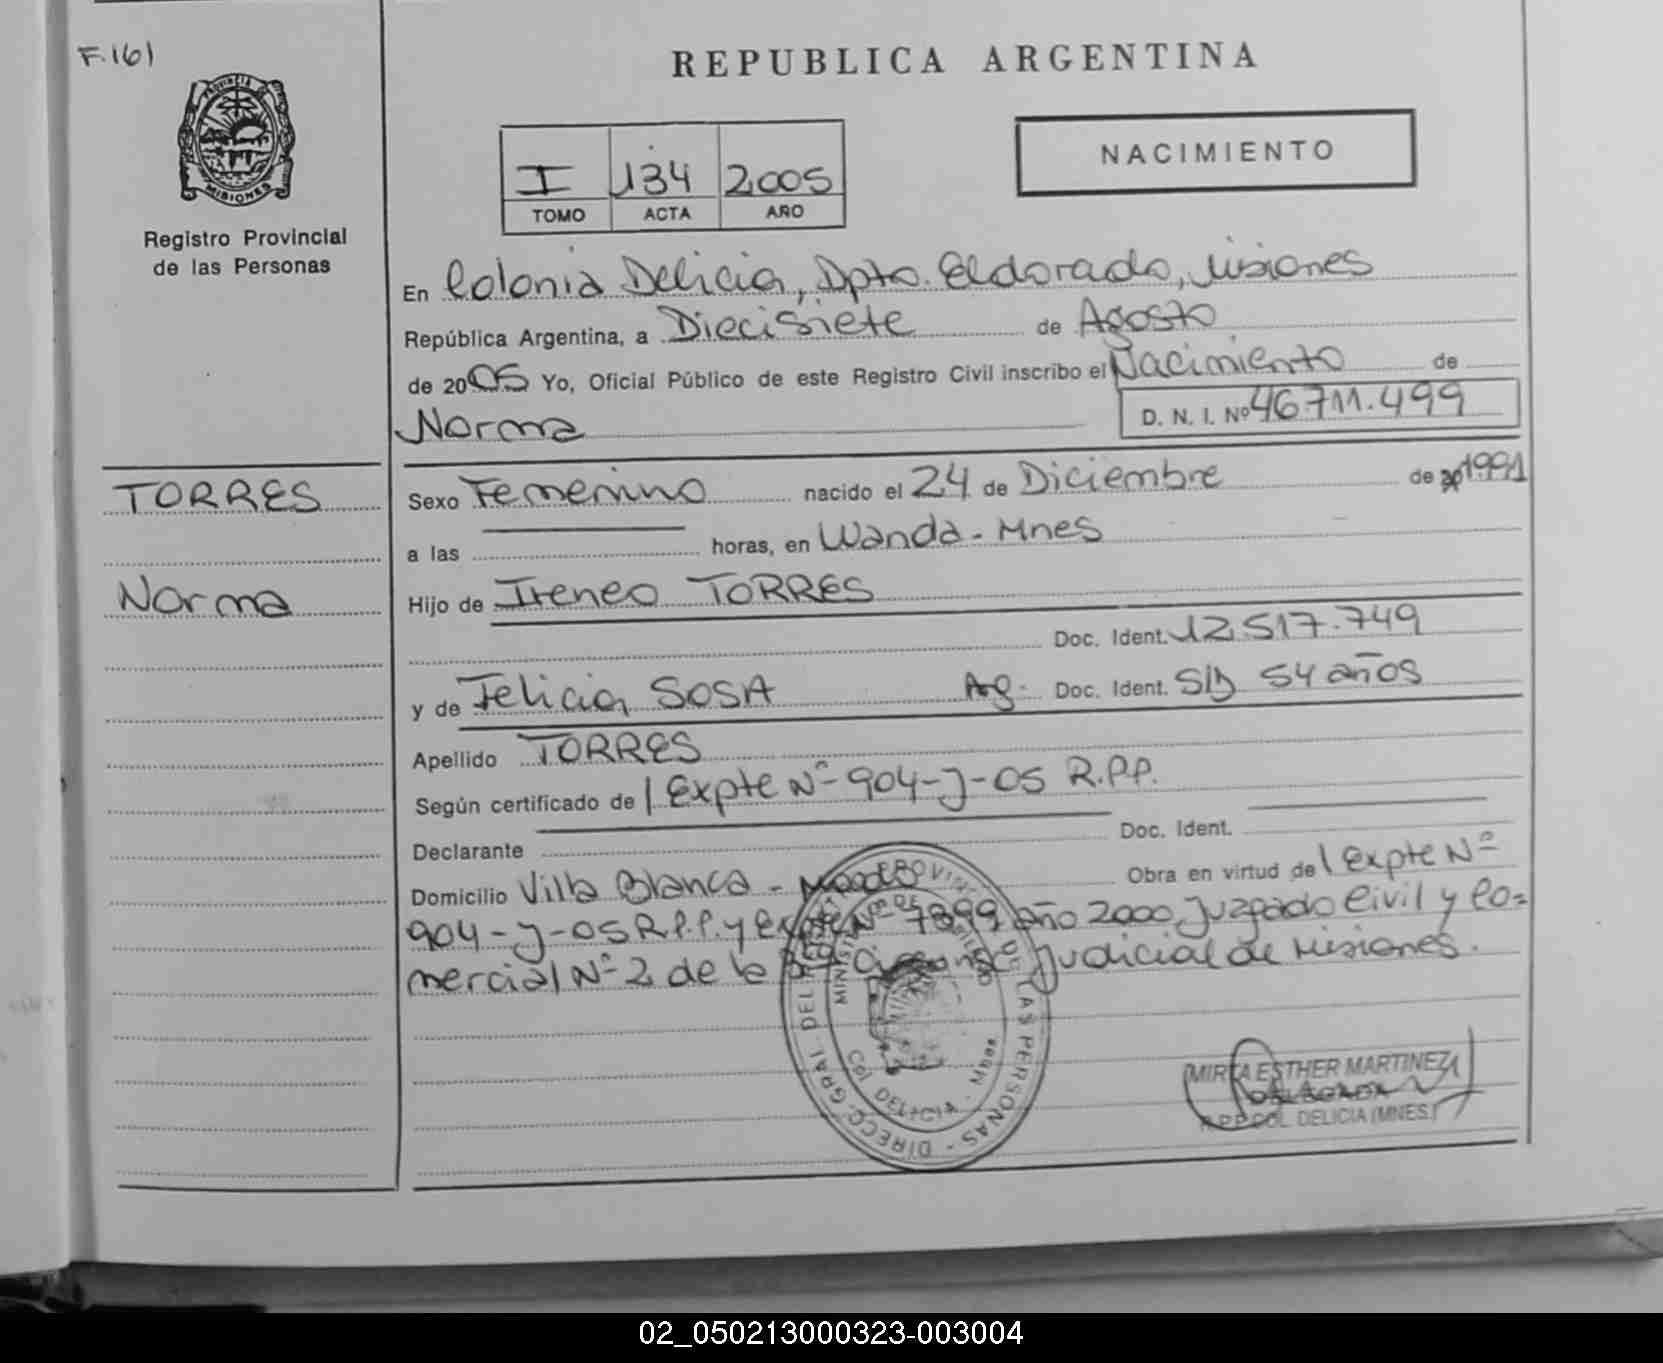 F.161
PROVINCIA DE
MISIONES
Registro Provincial
de las Personas
REPUBLICA ARGENTINA
I 134 2005
TOMO ACTA AÑO
NACIMIENTO
En Colonia Delicia, Dpto. Eldorado, Misiones
República Argentina, a Diecisiete de Agosto
de 2005 Yo, Oficial Público de este Registro Civil inscribo el Nacimiento de
Norma D. N. I. Nº 46.711.499
TORRES
Norma
Sexo Femenino nacido el 24 de Diciembre de 1991
a las horas, en Wanda - Mnes
Hijo de Ireneo TORRES
Doc. Ident. 12.517.749
y de Felicia SOSA Arg. Doc. Ident. S/D 54 años
Apellido TORRES
Según certificado de / Expte Nº 904-J-05 R.P.P.
Declarante Doc. Ident.
Domicilio Villa Blanca - Obra en virtud de / Expte Nº
904-J-05 R.P.P. y Expte Nº 7899 año 2000, Juzgado Civil y Co=
mercial Nº 2 de la Judicial de Misiones.
DIRECC. GRAL. DEL DE LAS PERSONAS
Col DELICIA - Mnes
MIRTA ESTHER MARTINEZ
DELEGADA
R.P.P. COL. DELICIA (MNES)
02_050213000323-003004